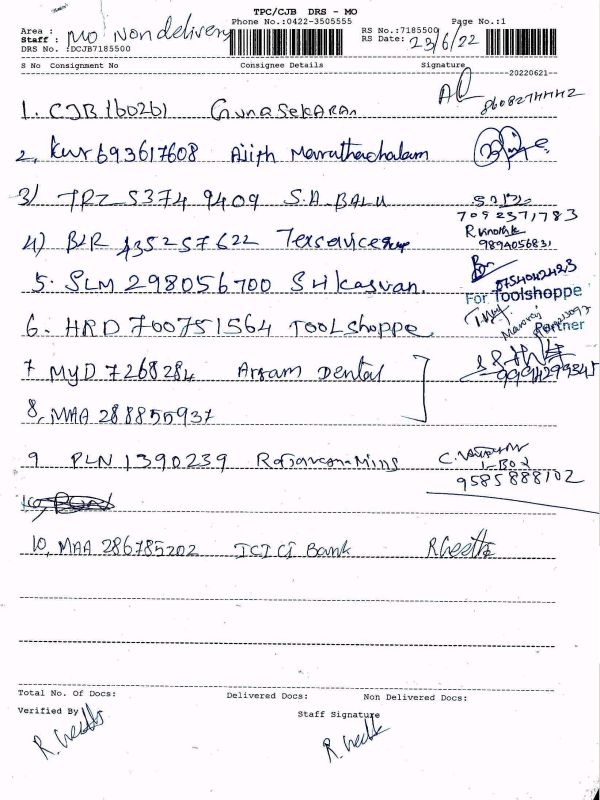 TPC/CJB DRS - MO
Phone No.:0422-3505555 Page No.:1
Area :
Staff : MO Non delivery
DRS No. :DCJB7185500
RS No.:7185500
RS Date: 23/6/22
S No Consignment No Consignee Details Signature
20220621
1. CJB 160261 GunaSekaRan
2, KWR 693617608 Ajith Maruthachalam
3) TRZ 53749409 S.A. BALU
7092371783
4) BLR 435257622
9894056831
5. SLM 298056700
For Toolshoppe
6. HRD 700751564 TOOLShoppe
Partner
7 MYD 7268284 Assam Dental
8, MAA 288855937
9 PLN 1390239
9585888102
10, MAA 286785202 ICICI Bank R Geetha
Total No. Of Docs: Delivered Docs: Non Delivered Docs:
Verified By
Staff Signature
R. Geetha
R. Geetha